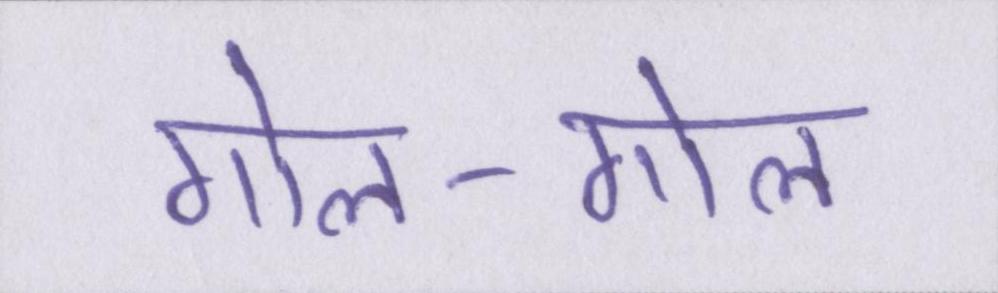 गोल-गोल